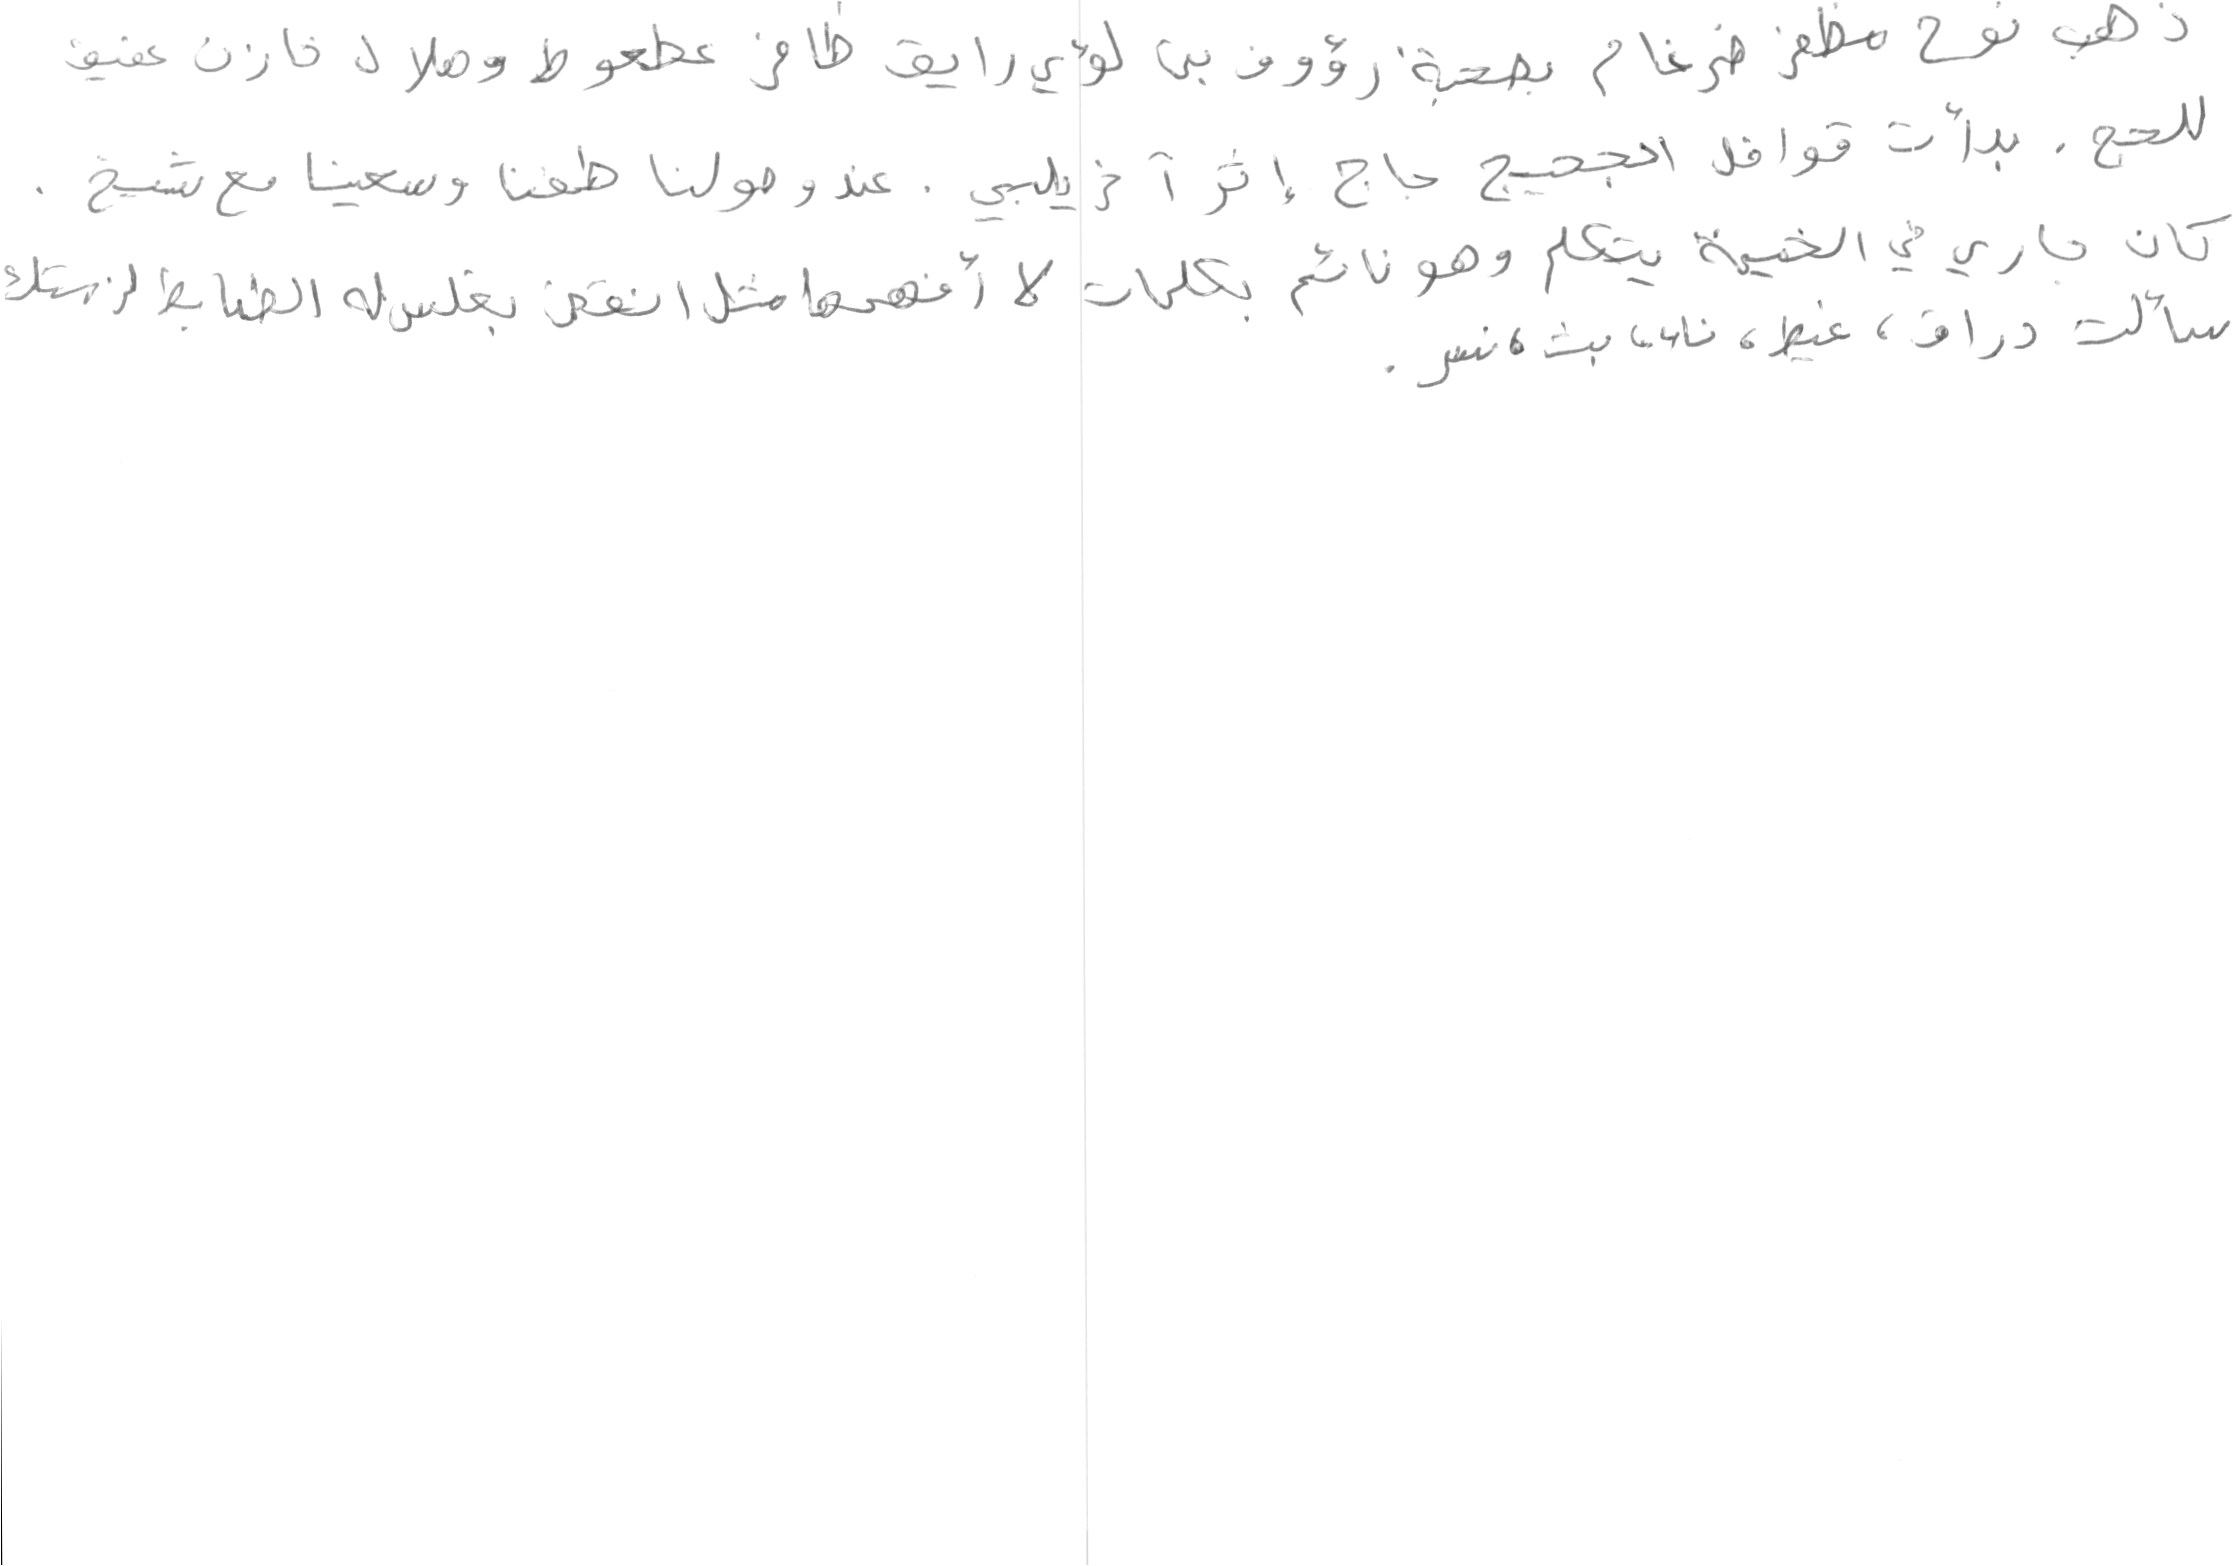 ذهب نوح مظفر ضرغام بصحبة رؤوف بن لؤي رايق ظافر عطعوط وهلال خازن عفيف
للحج. بدأت قوافل الحجيج حاج إثر آخر يلبي. عند وصولنا طفنا وسعينا مع شيخ.
كان جاري في الخيمة يتكلم وهو نائم بكلمات لا أفهمها مثل انغض بغلس له الضابط
سألت دراق، غيط، ناء، بث، نسر.